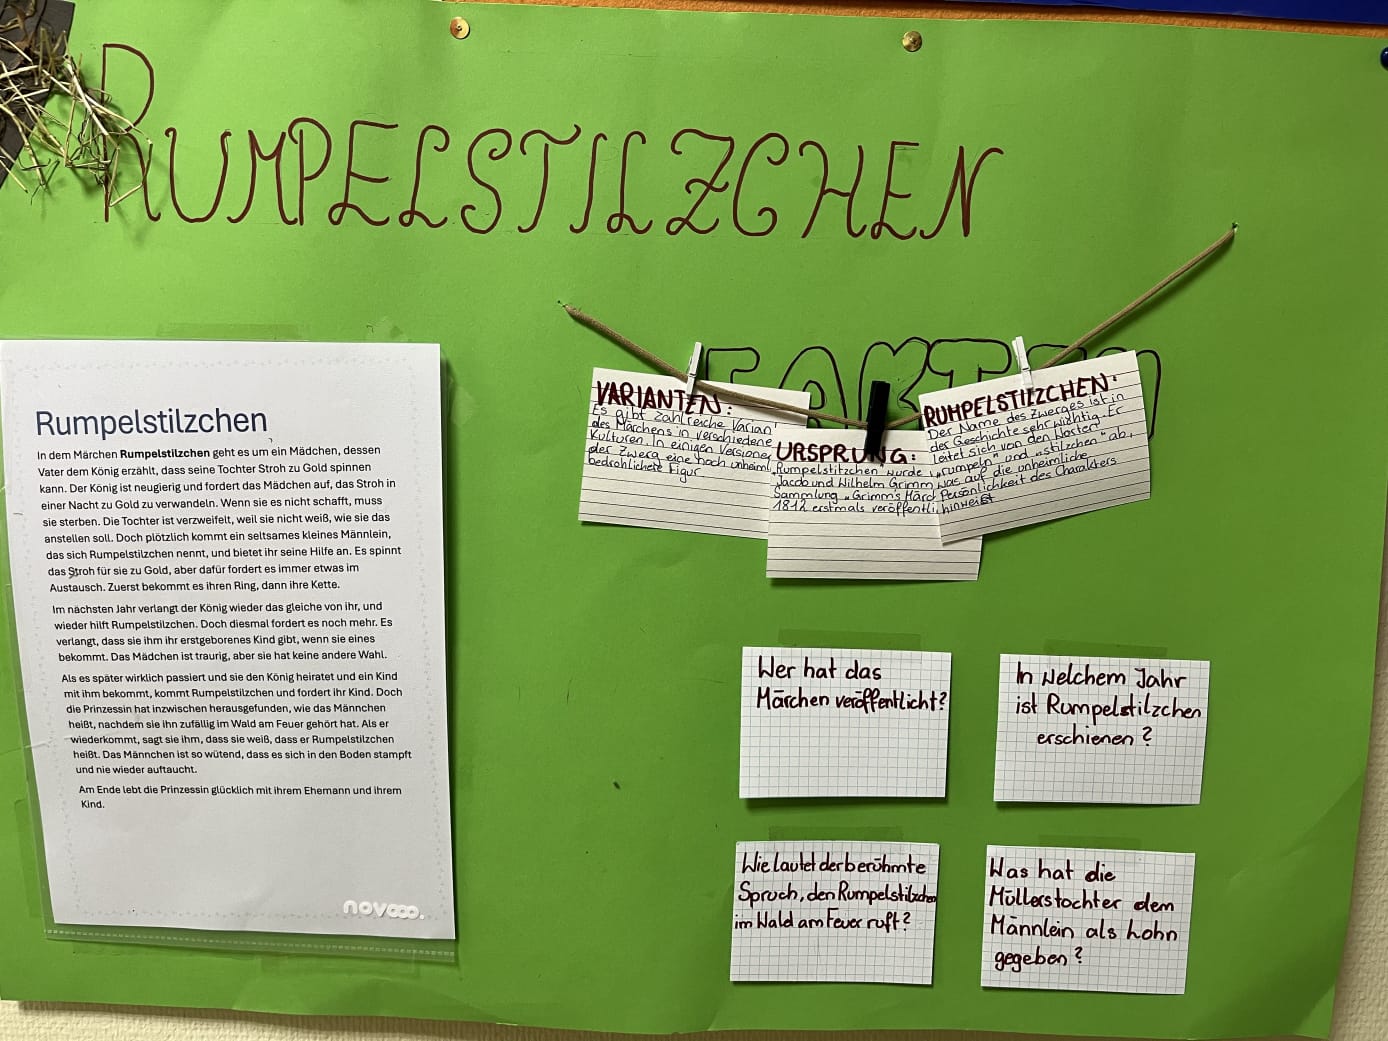 RUMPELSTILZCHEN
FAKTEN
Rumpelstilzchen
In dem Märchen Rumpelstilzchen geht es um ein Mädchen, dessen
Vater dem König erzählt, dass seine Tochter Stroh zu Gold spinnen
kann. Der König ist neugierig und fordert das Mädchen auf, das Stroh in
einer Nacht zu Gold zu verwandeln. Wenn sie es nicht schafft, muss
sie sterben. Die Tochter ist verzweifelt, weil sie nicht weiß, wie sie das
anstellen soll. Doch plötzlich kommt ein seltsames kleines Männlein,
das sich Rumpelstilzchen nennt, und bietet ihr seine Hilfe an. Es spinnt
das Stroh für sie zu Gold, aber dafür fordert es immer etwas im
Austausch. Zuerst bekommt es ihren Ring, dann ihre Kette.
Im nächsten Jahr verlangt der König wieder das gleiche von ihr, und
wieder hilft Rumpelstilzchen. Doch diesmal fordert es noch mehr. Es
verlangt, dass sie ihm ihr erstgeborenes Kind gibt, wenn sie eines
bekommt. Das Mädchen ist traurig, aber sie hat keine andere Wahl.
Als es später wirklich passiert und sie den König heiratet und ein Kind
mit ihm bekommt, kommt Rumpelstilzchen und fordert ihr Kind. Doch
die Prinzessin hat inzwischen herausgefunden, wie das Männchen
heißt, nachdem sie ihn zufällig im Wald am Feuer gehört hat. Als er
wiederkommt, sagt sie ihm, dass sie weiß, dass er Rumpelstilzchen
heißt. Das Männchen ist so wütend, dass es sich in den Boden stampft
und nie wieder auftaucht.
Am Ende lebt die Prinzessin glücklich mit ihrem Ehemann und ihrem
Kind.
novooo.
VARIANTEN:
Es gibt zahlreiche Varian
des Märchens in verschiedene
Kulturen. In einigen Versione
der Zwerg eine noch unheiml
bedrohlichere Figur
URSPRUNG:
Rumpelstitzchen wurde
Jacob und Wilhelm Grimm
Sammlung „Grimm's Märc
1812 erstmals veröffentli
RUMPELSTILZCHEN:
Der Name des Zwerges ist in
der Geschichte sehr wichtig. Er
leitet sich von den Worten
„rumpeln" und „stilzchen" ab,
was auf die unheimliche
Persönlichkeit des Charakters
hinweist
Wer hat das
Märchen veröffentlicht?
In welchem Jahr
ist Rumpelstilzchen
erschienen?
Wie lautet der berühmte
Spruch, den Rumpelstilzchen
im Wald am Feuer ruft?
Was hat die
Müllerstochter dem
Männlein als Lohn
gegeben?